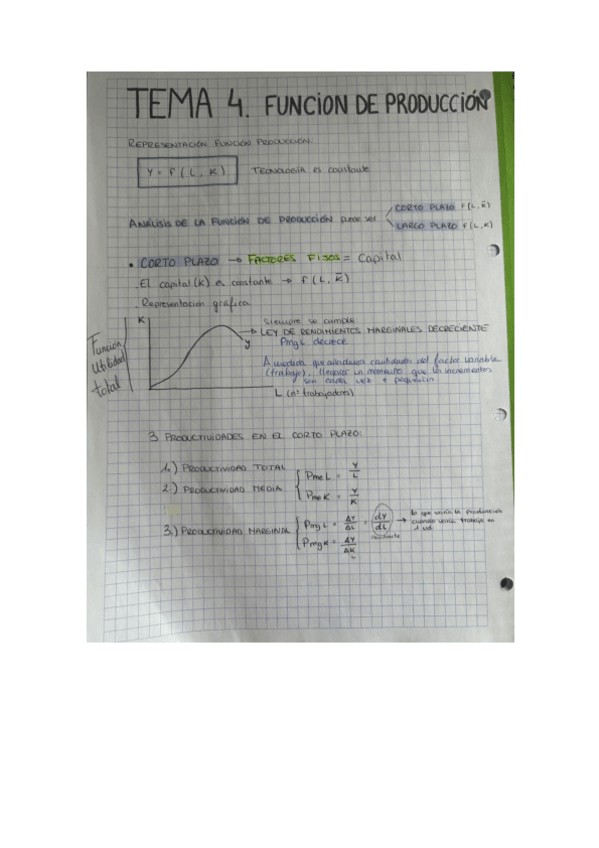 TEMA 4. FUNCION DE PRODUCCIÓN
REPRESENTACIÓN FUNCIÓN PRODUCCIÓN:
Y = f (L, K) TECNOLOGÍA es constante
CORTO PLAZO f(L, K̄)
ANÁLISIS DE LA FUNCIÓN DE PRODUCCIÓN puede ser
LARGO PLAZO f(L,K)
• CORTO PLAZO → FACTORES FIJOS = Capital
. El capital (K) es constante → f (L, K̄)
. Representación gráfica
K
Siempre se cumple
LEY DE RENDIMIENTOS MARGINALES DECRECIENTE
y
PmgL decrece
Función
Utilidad
total
A medida que añadimos cantidades del factor variable
(trabajo), llegará un momento que los incrementos
son cada vez + pequeños
L (nº trabajadores)
3 PRODUCTIVIDADES EN EL CORTO PLAZO:
1.) PRODUCTIVIDAD TOTAL
2.) PRODUCTIVIDAD MEDIA
PmeL = Y/L
PmeK = Y/K
3.) PRODUCTIVIDAD MARGINAL
PmgL = ΔY/ΔL = dY/dL → lo que varía la producción
cuando varía trabajo en
1 ud.
PmgK = ΔY/ΔK